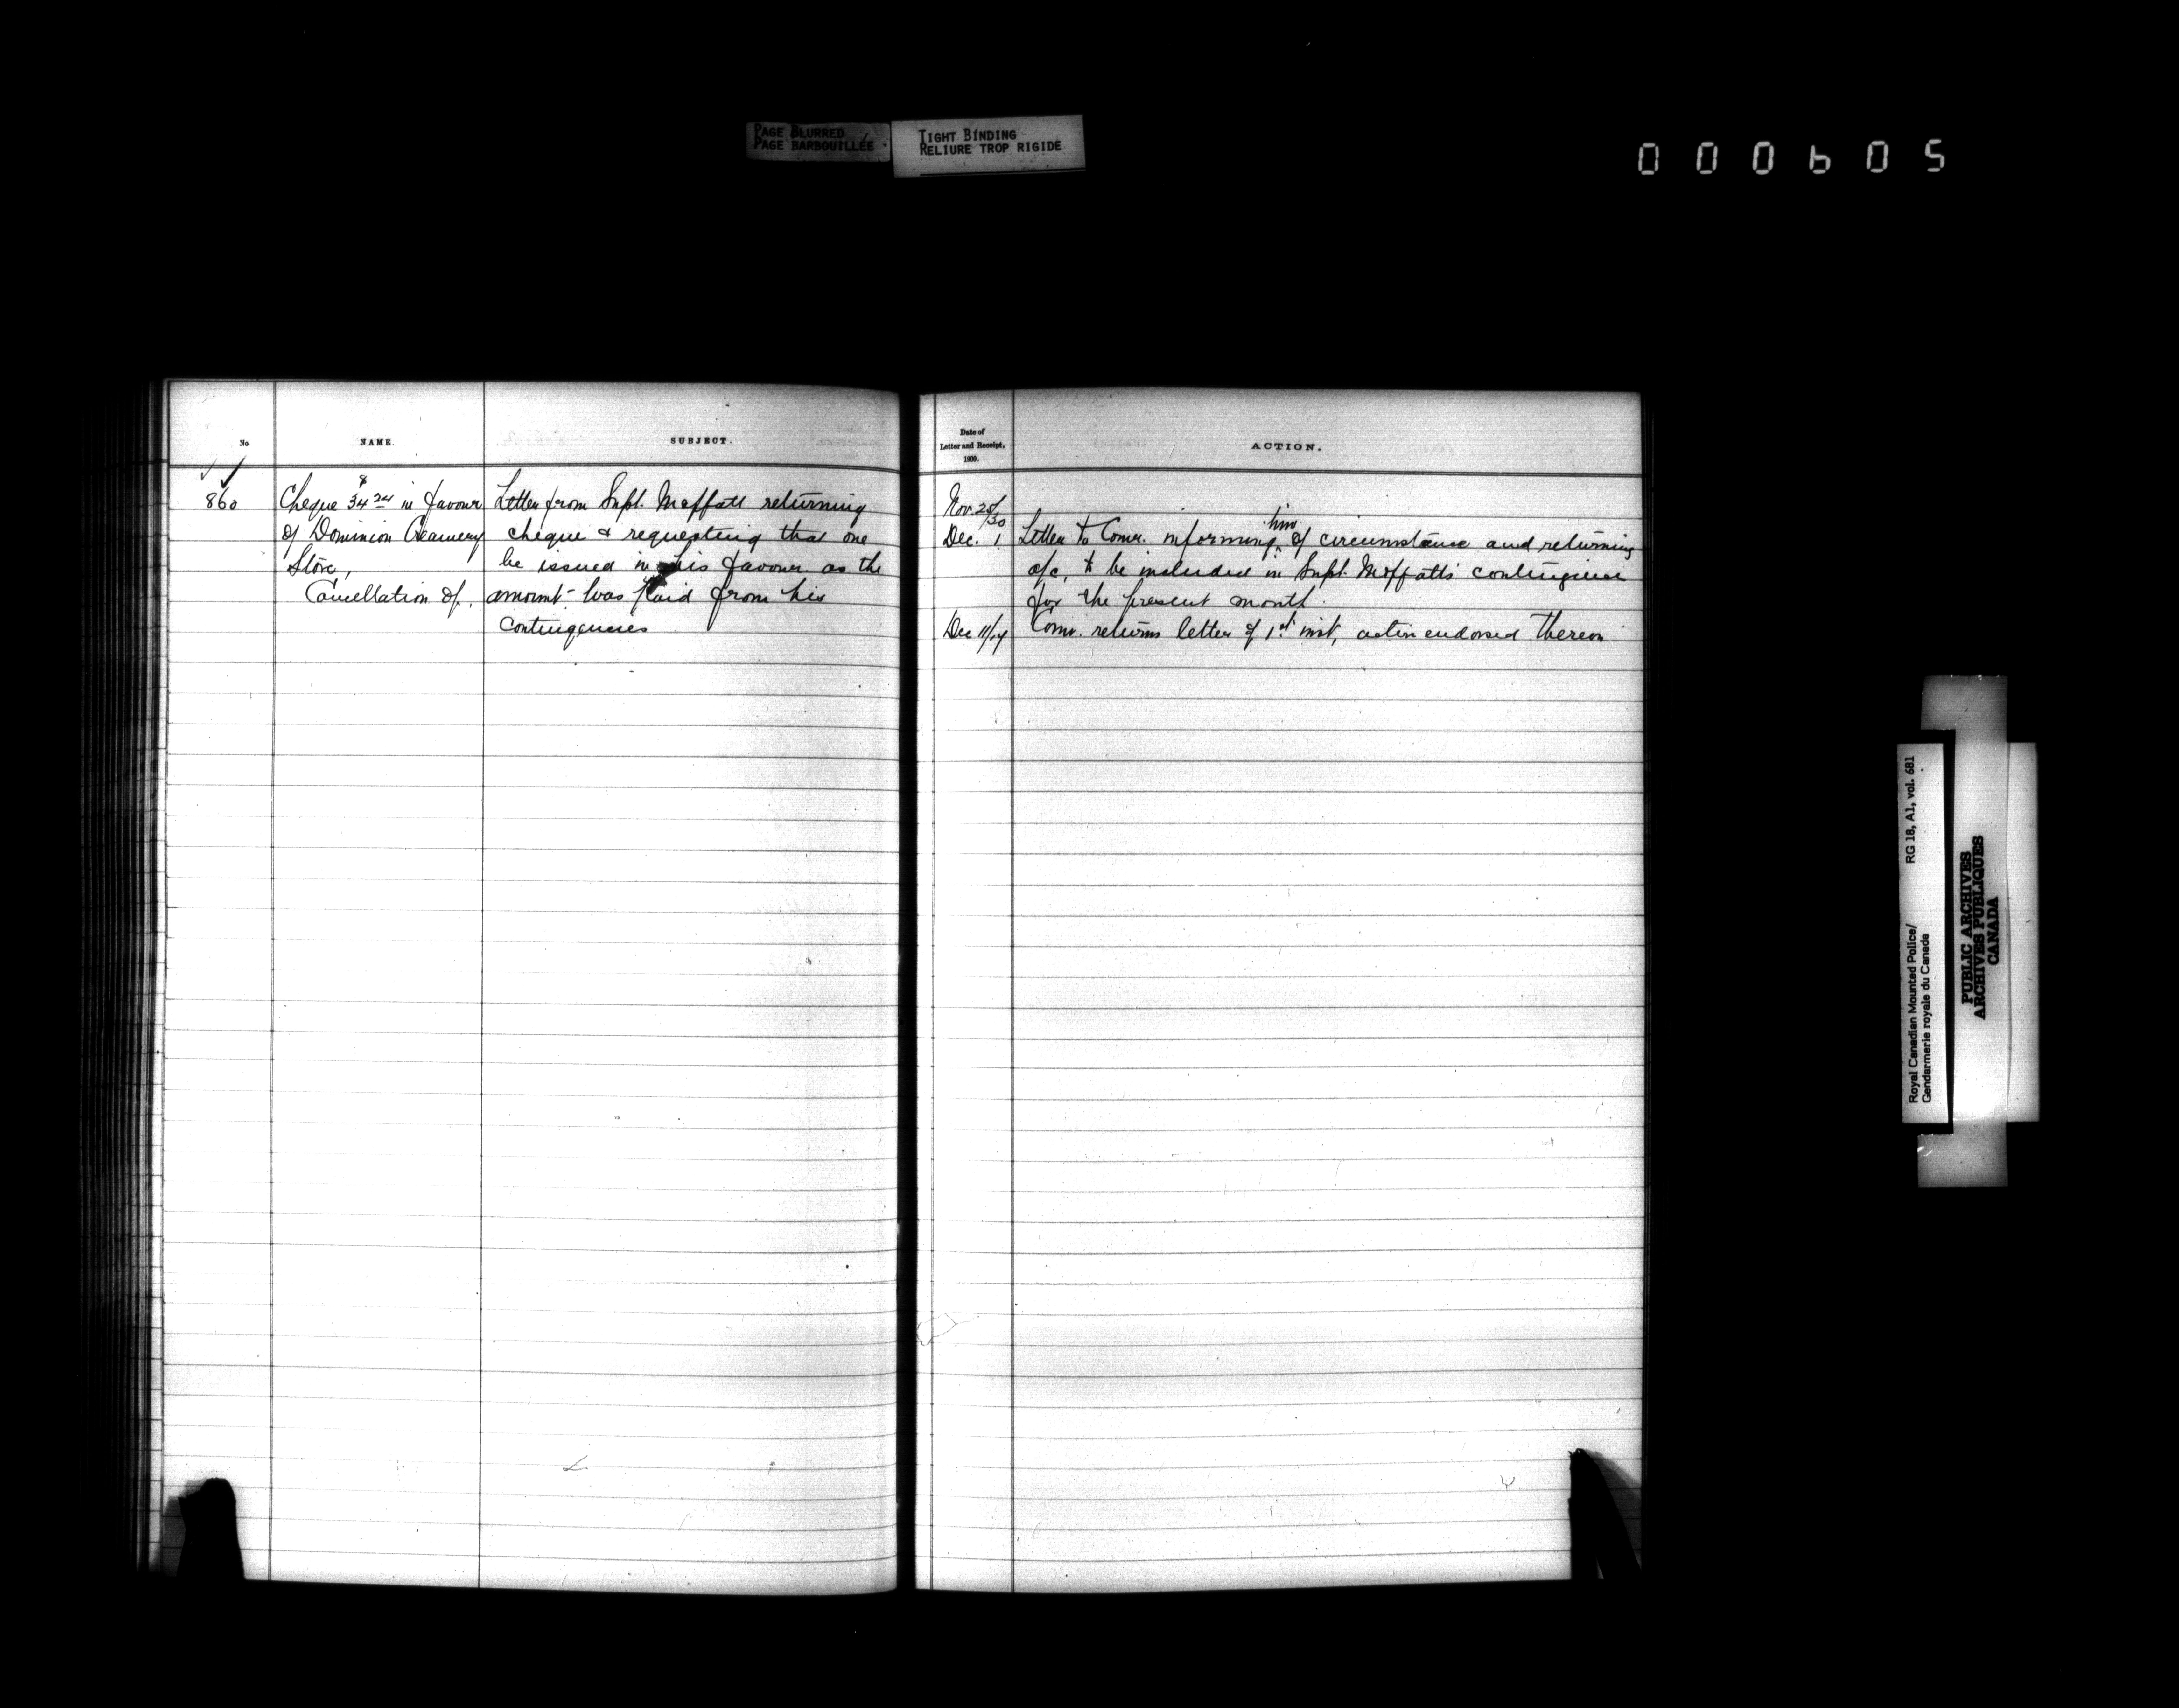 PAGE BLURRED
PAGE BARBOUILLÉE
TIGHT BINDING
RELIURE TROP RIGIDE
000605
No.
NAME.
SUBJECT.
860
Cheque $34 24 in favour
of Dominion Creamery
Store,
Cancellation of.
Letter from Supt. Moffatt returning
cheque & requesting that one
be issued in his favour as the
amount was paid from his
contingencies
Date of
Letter and Receipt,
1900.
ACTION.
Nov. 25/30
Dec. 1
Letter to Comr. informing him of circumstance and returning
a/c, to be included in Supt. Moffatt's contingencies
for the present month.
Dec 11/14
Comr. returns letter of 1st inst, action endorsed thereon
Royal Canadian Mounted Police/
Gendarmerie royale du Canada
RG 18, A1, vol. 681
PUBLIC ARCHIVES
ARCHIVES PUBLIQUES
CANADA